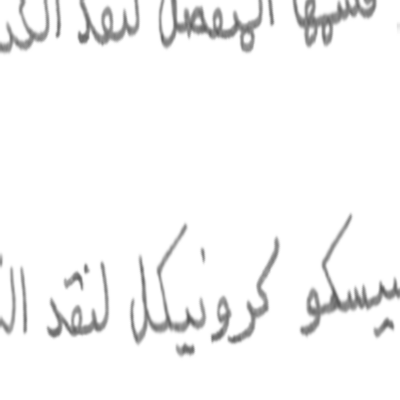 قسمها المفصل لنقد
يسكو كرونيكل لنقد